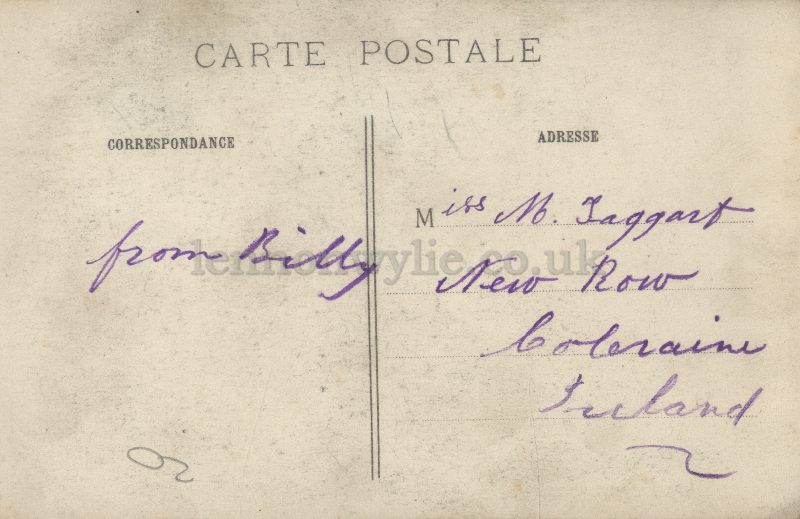 CARTE POSTALE
CORRESPONDANCE
ADRESSE
from Billy
Miss M. Taggart
New Row
Coleraine
Ireland
lennonwylie.co.uk